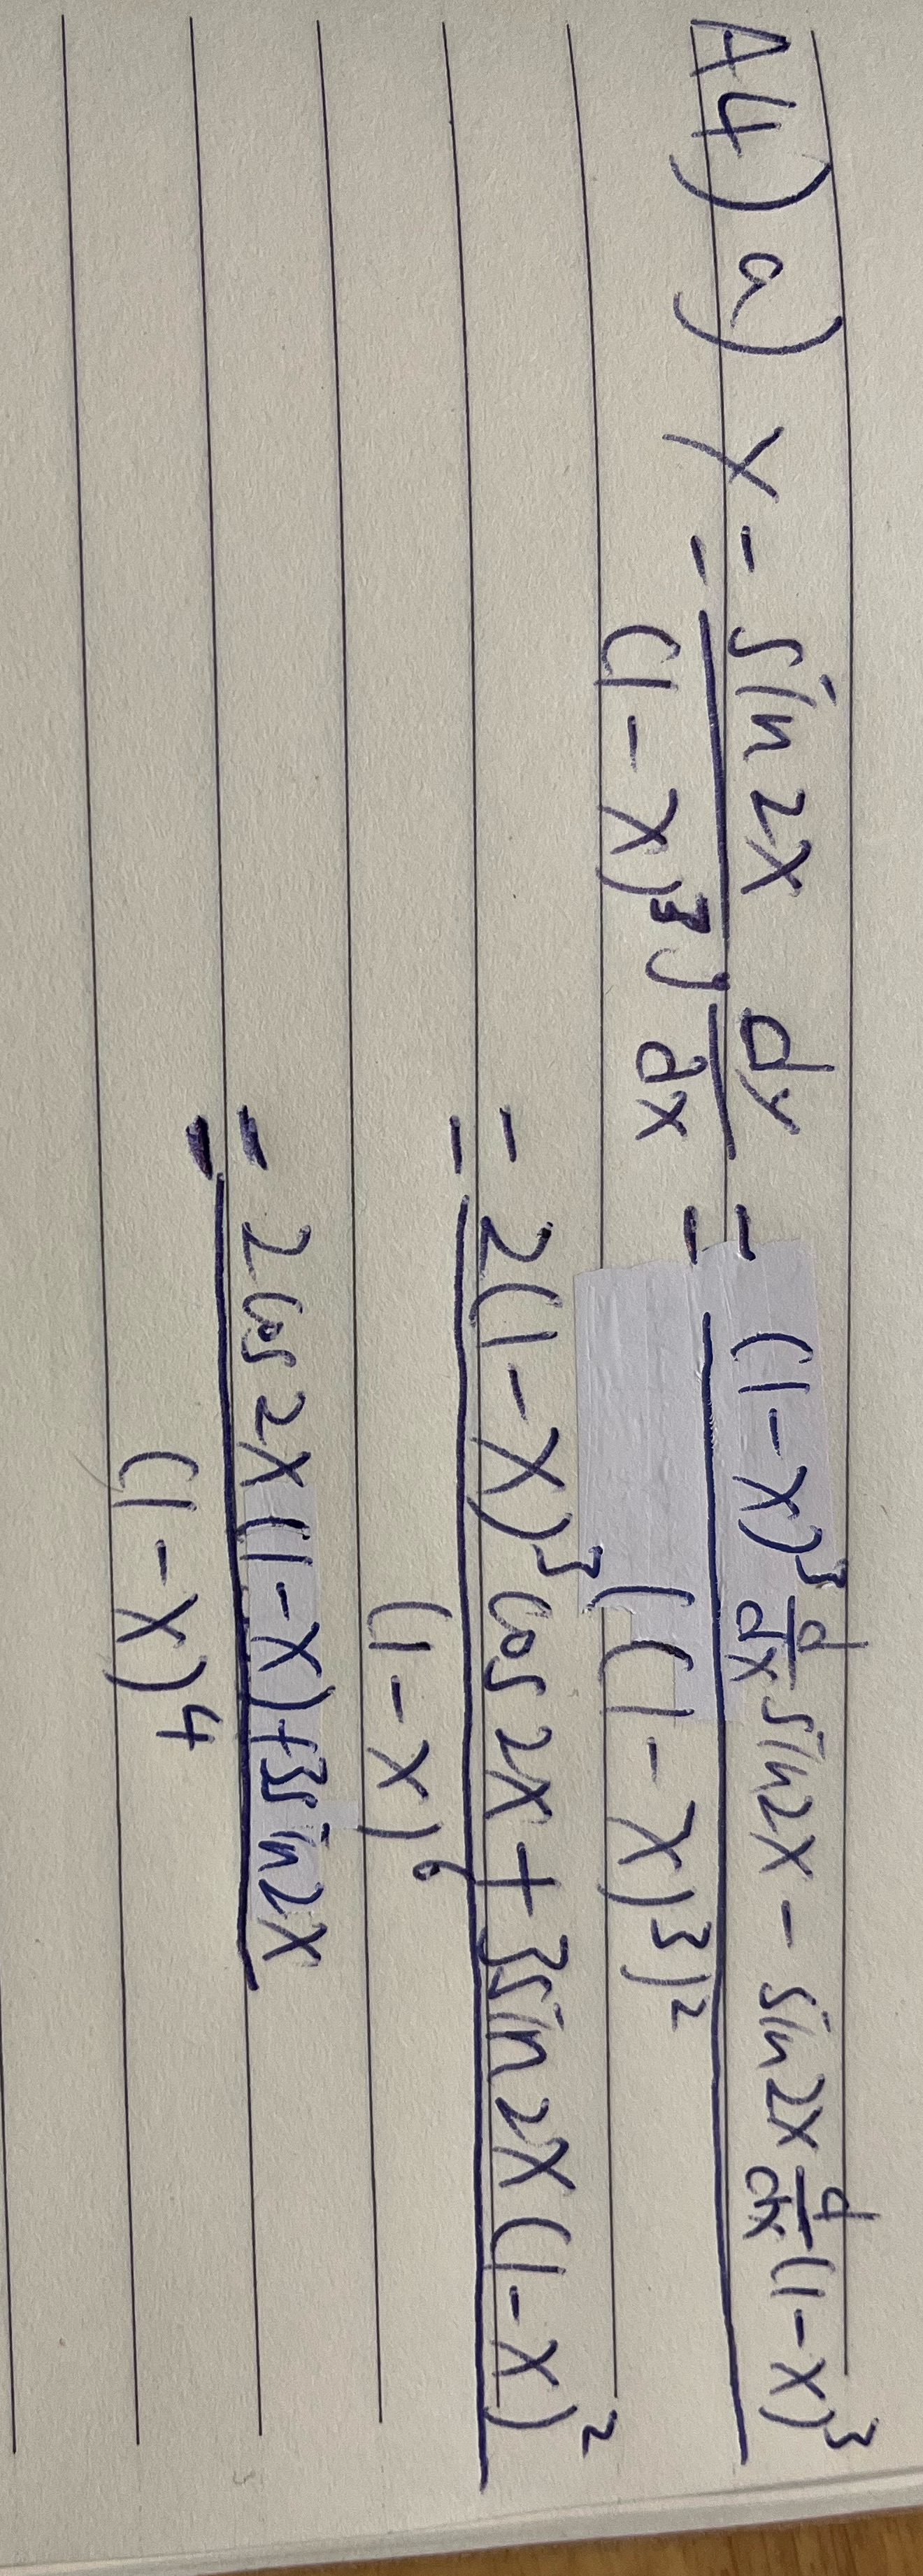 A4) a) y = sin 2x / (1-x)³, dy/dx = ((1-x)³ d/dx sin2x - sin 2x d/dx (1-x)³) / ((1-x)³)²
= (2(1-x)³ cos 2x + 3sin 2x (1-x)²) / (1-x)⁶
= (2 cos 2x (1-x) + 3sin 2x) / (1-x)⁴